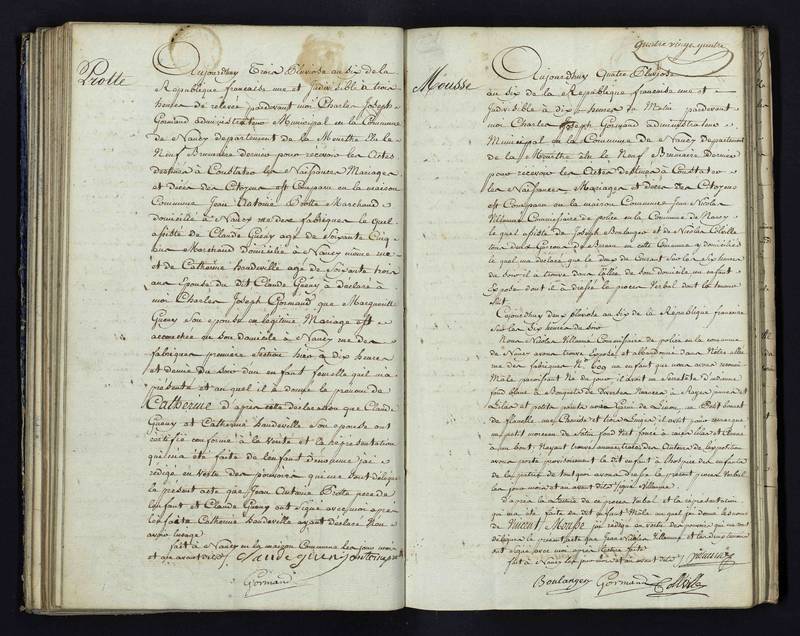 Protte
Aujourdhuy Trois Pluviose au six de la
République francaise une et Indivisible à trois
heures de relevée pardevant moi Charles Joseph
Gormand administrateur Municipal en la Commune
de Nancy departement de la Meurthe élu le
Neuf Brumaire dernier pour recevoir les actes
destinés à Constater les Naissances Mariages
et décès des Citoyens est Comparu en la maison
Commune Jean Antoine Protte Marchand
domicilié à Nancy rue des fabriques le quel
assisté de Claude Gueny agé de Soixante Cinq
ans Marchand domicilié à Nancy même rue
et de Catherine haudeville agé de Soixante trois
ans épouse du dit Claude Gueny à declaré à
moi Charles Joseph Gormand que Marguerite
Gueny Son épouse en légitime Mariage est
accouchée en Son domicile à Nancy rue des
fabriques première Section hier à dix heures
et demie du Soir d'un enfant femelle quil m'a
présenté et au quel il a donné le prénom de
Catherine d'après cette declaration que Claude
Gueny et Catherine haudeville Son epouse ont
certifié conforme à la Verité et la représentation
qui m'a été faite de l'enfant dénommé j'ai
rédigé en Vertu des pouvoirs qui me Sont délégués
le présent acte que Jean Antoine Protte pere de
l'enfant et Claude Gueny ont Signé avec moi apres
lecture faite Catherine haudeville ayant déclaré Non
avoir lusage
fait à Nancy en la maison Commune les jour mois
et an avant dits
Gormand
quatre vingt quatre
Mousse
Aujourdhuy Quatre Pluviose
au six de la République francaise une et
Indivisible à dix heures du Matin pardevant
moi Charles Joseph Gormand administrateur
Municipal en la Commune de Nancy departement
de la Meurthe élu le Neuf Brumaire dernier
pour recevoir les actes destinés à Constater
les Naissances Mariages et décès des Citoyens
est Comparu en la maison Commune Jean Nicolas
Villaume Commissaire de police en la Commune de Nancy
le quel assisté de Joseph Boulanger et de Nicolas Colville
tous deux Garcons de Bureau en cette Commune y domiciliés
le quel m'a déclaré que le deux du Courant Sur les dix heures
du Soir il a trouvé dans l'allée de Son domicile un enfant
exposé dont il a dressé le procès Verbal dont la teneur
Suit
Cejourdhuy deux pluviose au six de la République francaise
Sur les dix heures du Soir
Nous Nicolas Villaume Commissaire de police en la commune
de Nancy avons trouvé exposé et abandonné dans Nôtre allée
rue des fabriques No 609 un enfant que nous avons reconnu
Mâle paraissant Né de jour il avoit un
fond blanc à Bouquets de diverses Nuances à Rayes jaunes et
lilas et petits points
de flanelle une Chemise
un petit morceau de Satin fond Vert
au bout Nayant trouvé aucun
avons porté provisoirement le dit enfant à l'hospice des enfants
de la patrie de tout quoi avons dressé le présent procès Verbal
les jour mois et an avant dits Signé Villaume
d'après la Lecture de ce procès Verbal et la représentation
qui m'a été faite de cet enfant Mâle au quel j'ai donné les noms
de Vincent Mousse j'ai rédigé en vertu des pouvoirs qui me sont
délégués le présent acte que Jean Nicolas Villaume et les deux temoins
ont signé avec moi après Lecture faite
fait à Nancy les jour mois et an avant dits
Boulanger Gormand Colville